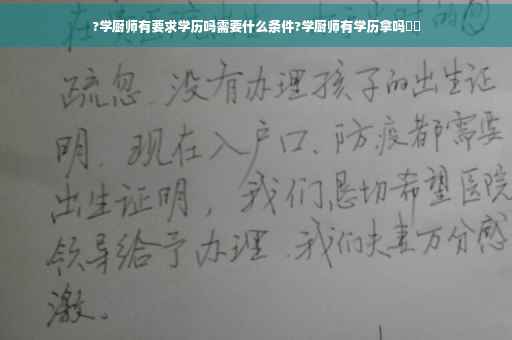 ?学厨师有要求学历吗需要什么条件?学厨师有学历拿吗
疏忽、没有办理孩子的出生证
明、现在入户口、防疫都需要
出生证明，我们恳切希望医院
领导给予办理、我们夫妻万分感
激。